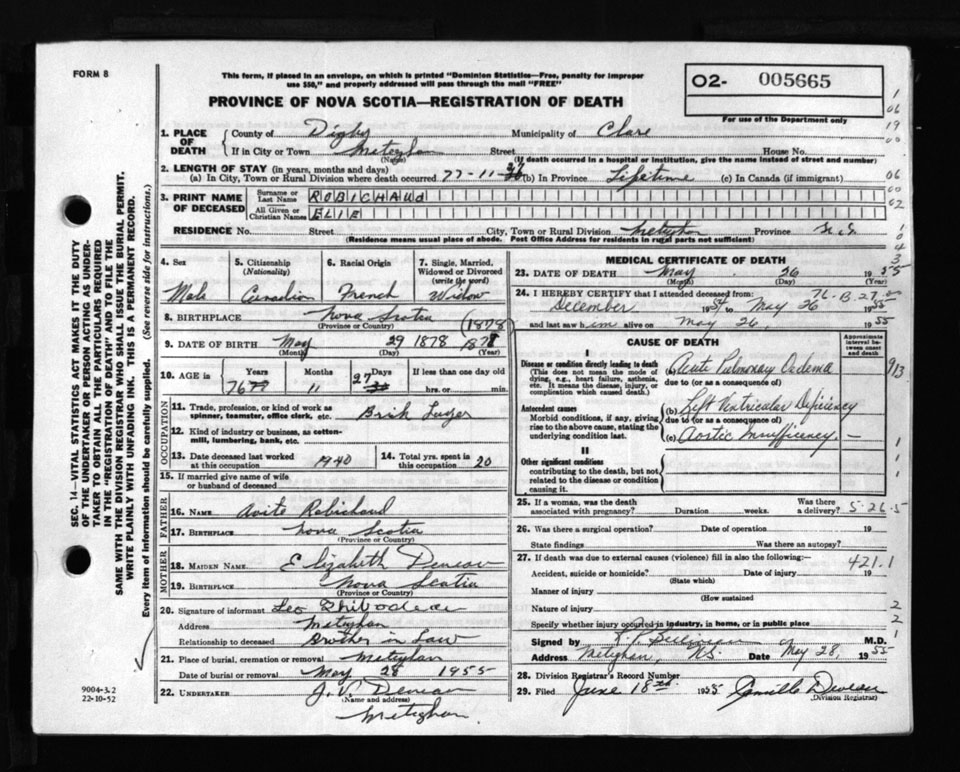 FORM 8
This form, if placed in an envelope, on which is printed "Dominion Statistics—Free, penalty for improper
use $50," and properly addressed will pass through the mail "FREE"
O2- 005665
For use of the Department only
PROVINCE OF NOVA SCOTIA—REGISTRATION OF DEATH
1. PLACE OF DEATH
County of Digby Municipality of Clare
If in City or Town Meteghan Street House No.
(Name) (If death occurred in a hospital or institution, give the name instead of street and number)
2. LENGTH OF STAY (in years, months and days)
(a) In City, Town or Rural Division where death occurred 77-11-27 (b) In Province Lifetime (c) In Canada (if immigrant)
3. PRINT NAME OF DECEASED
Surname or Last Name ROBICHAUD
All Given or Christian Names ELIE
RESIDENCE No. Street City, Town or Rural Division Meteghan Province N.S.
(Residence means usual place of abode. Post Office Address for residents in rural parts not sufficient)
4. Sex
Male
5. Citizenship
(Nationality)
Canadian
6. Racial Origin
French
7. Single, Married,
Widowed or Divorced
(write the word)
Widow
8. BIRTHPLACE Nova Scotia
(Province or Country)
(1878)
9. DATE OF BIRTH May 29 1878
(Month) (Day) (Year)
10. AGE in Years Months Days If less than one day old
76 11 27 hrs. or min.
OCCUPATION
11. Trade, profession, or kind of work as
spinner, teamster, office clerk, etc. Brick Layer
12. Kind of industry or business, as cotton-
mill, lumbering, bank, etc.
13. Date deceased last worked
at this occupation 1940
14. Total yrs. spent in
this occupation 20
15. If married give name of wife
or husband of deceased
FATHER
16. NAME Avite Robichaud
17. BIRTHPLACE Nova Scotia
(Province or Country)
MOTHER
18. MAIDEN NAME Elizabeth Deveau
19. BIRTHPLACE Nova Scotia
(Province or Country)
20. Signature of informant Leo Thibodeau
Address Meteghan
Relationship to deceased Brother in Law
21. Place of burial, cremation or removal Meteghan
Date of burial or removal May 28 1955
22. UNDERTAKER J. V. Deveau
(Name and address)
Meteghan
MEDICAL CERTIFICATE OF DEATH
23. DATE OF DEATH May 26 1955
(Month) (Day)
76-B-27
24. I HEREBY CERTIFY that I attended deceased from:
December 1954 to May 26 1955
and last saw him alive on May 26, 1955
CAUSE OF DEATH
Approximate interval between onset and death
I
Disease or condition directly leading to death
(This does not mean the mode of dying, e.g., heart failure, asthenia, etc. It means the disease, injury, or complication which caused death.)
(a) Acute Pulmonary Oedema
due to (or as a consequence of)
Antecedent causes
Morbid conditions, if any, giving rise to the above cause, stating the underlying condition last.
(b) Left Ventricular Deficiency
due to (or as a consequence of)
(c) Aortic Insufficiency.
II
Other significant conditions
contributing to the death, but not related to the disease or condition causing it.
25. If a woman, was the death
associated with pregnancy? Duration weeks. Was there a delivery?
5-26-5
26. Was there a surgical operation? Date of operation 19
State findings Was there an autopsy?
27. If death was due to external causes (violence) fill in also the following:—
421.1
Accident, suicide or homicide? Date of injury 19
(State which)
Manner of injury
(How sustained
Nature of injury
Specify whether injury occurred in industry, in home, or in public place
Signed by M.D.
Address Meteghan, N.S. Date May 28, 1955
28. Division Registrar's Record Number
29. Filed June 18th 1955 Camille Deveau
(Division Registrar)
SEC. 14—VITAL STATISTICS ACT MAKES IT THE DUTY
OF THE UNDERTAKER OR PERSON ACTING AS UNDER-
TAKER TO OBTAIN ALL THE PARTICULARS REQUIRED
IN THE "REGISTRATION OF DEATH" AND TO FILE THE
SAME WITH THE DIVISION REGISTRAR WHO SHALL ISSUE THE BURIAL PERMIT.
WRITE PLAINLY WITH UNFADING INK. THIS IS A PERMANENT RECORD.
Every item of information should be carefully supplied. (See reverse side for instructions.)
9004-3.2
22-10-52